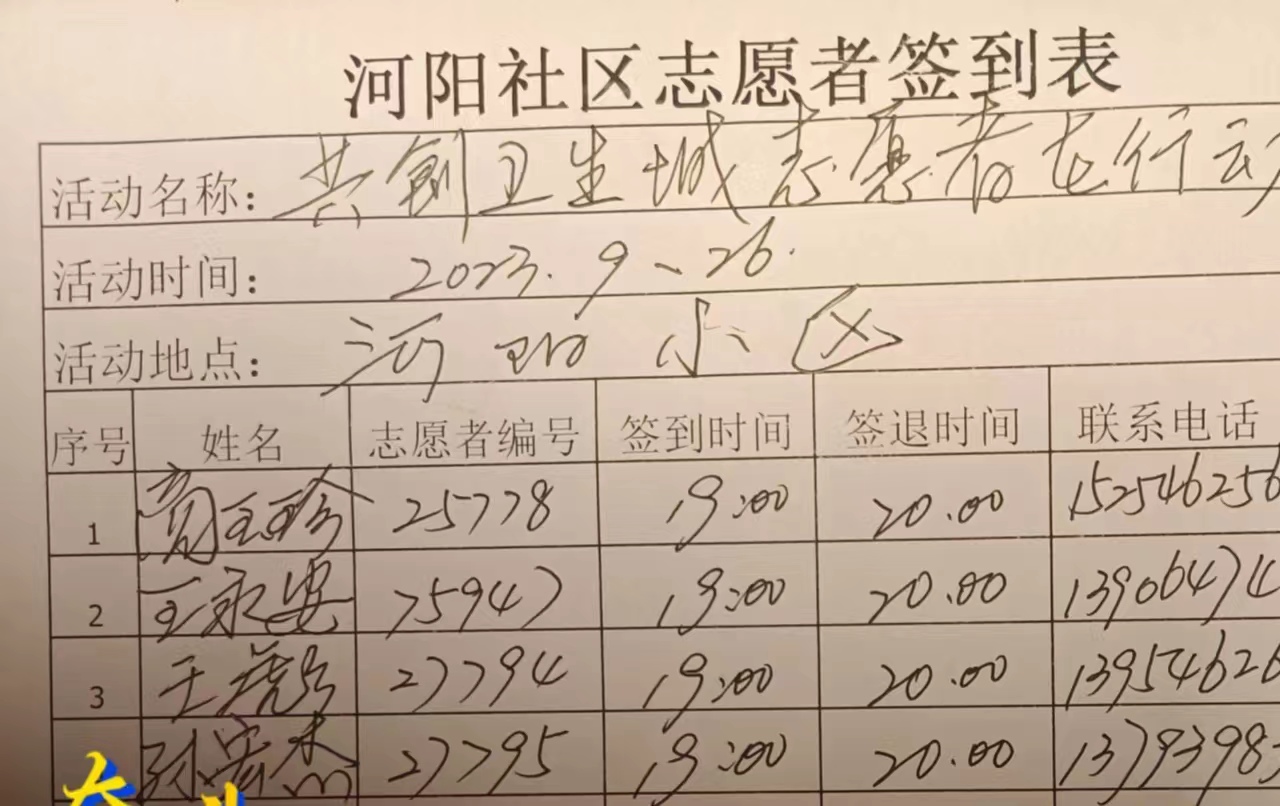 河阳社区志愿者签到表
活动名称: 共创卫生城志愿者在行动
活动时间: 2023.9、26.
活动地点: 河阳小区
序号 姓名 志愿者编号 签到时间 签退时间 联系电话
1 25778 19:00 20.00 152546256
2 王永 75947 19:00 20.00 13906474
3 王 27794 19:00 20.00 13954626
孙宏杰 27795 19:00 20.00 13793983